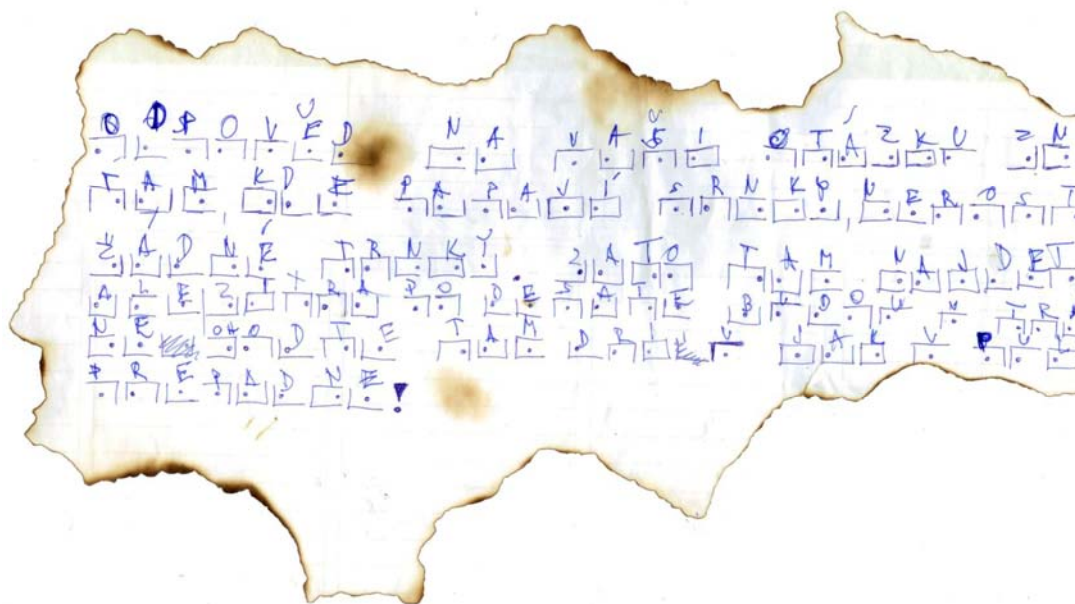 ODPOVĚD NA VAŠI OTÁZKU ZN
TAM, KDE PAPAVÍ SRNKY, NEROST
ŽÁDNÉ TRNKY ZATO TAM NAJDET
ALE ZITRA PO DESATE BUDOU V TRA
NE CHODTE TAM DRIV JAK V PUL
PREPADNE!